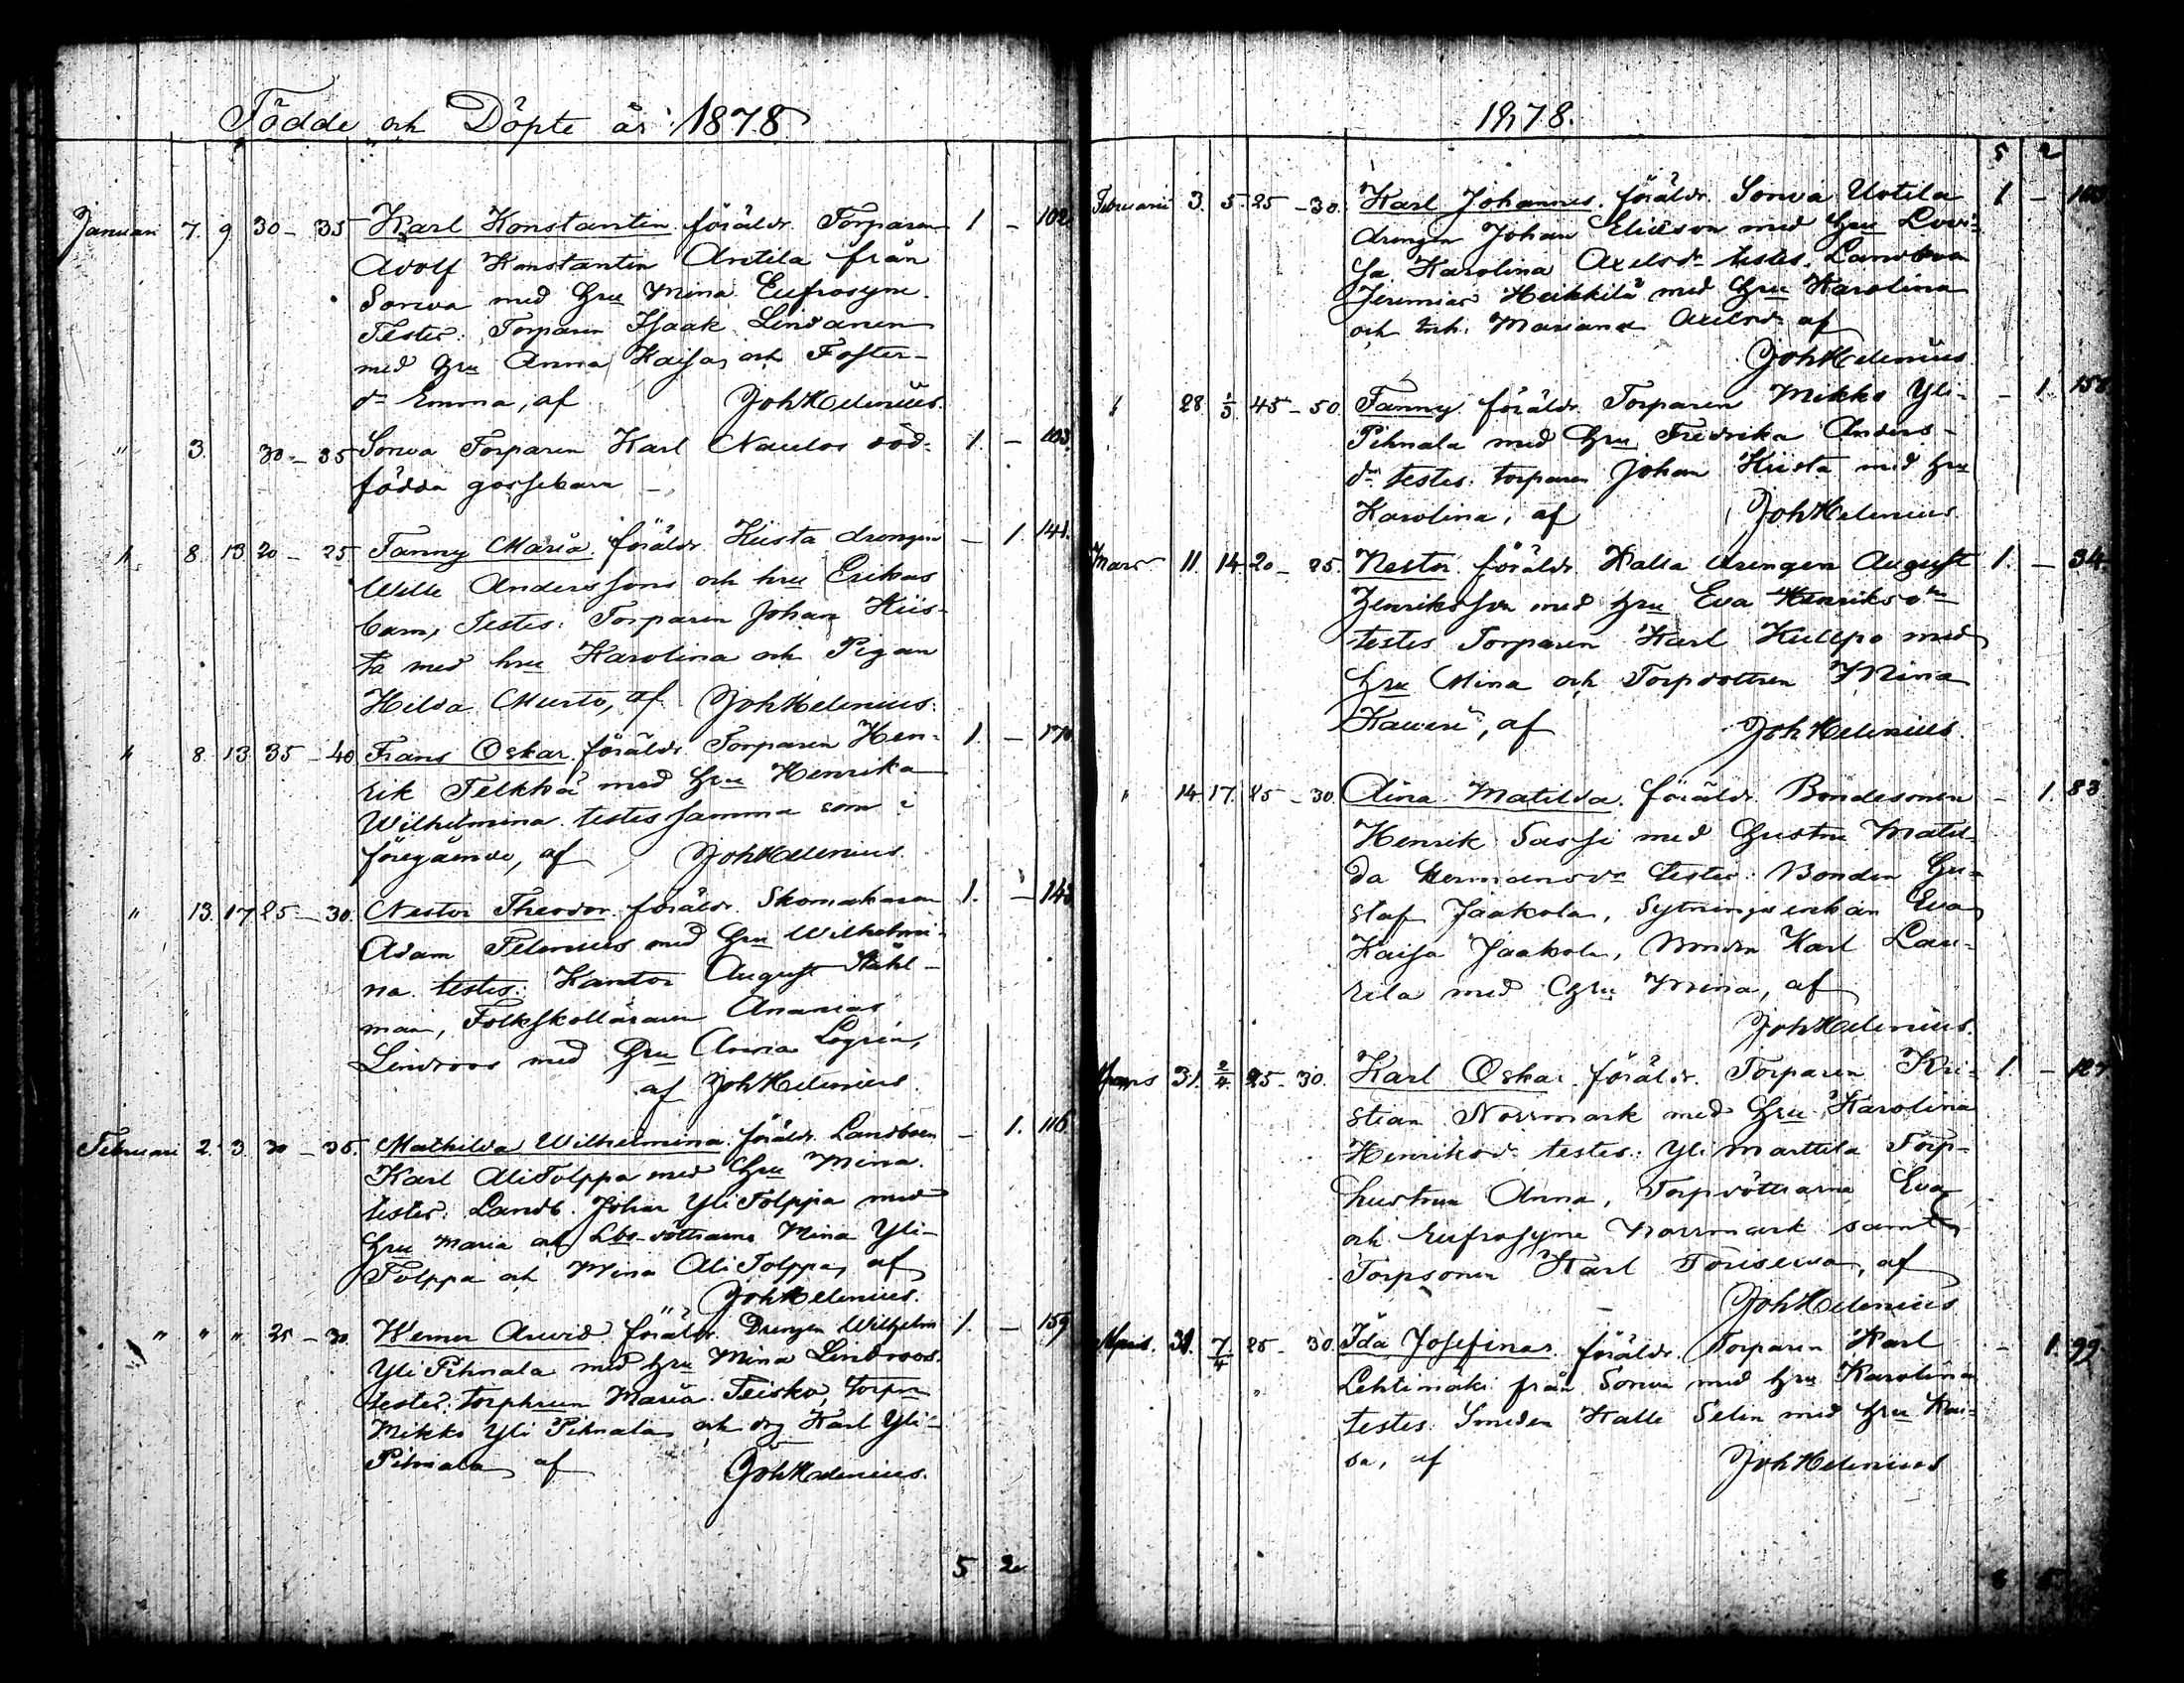 Födde och Döpte år 1878
Januari 7. 9 30 - 35 Karl Konstantin föräldr. Torparen 1 - 102
Adolf Konstantin Antila från
Sorwa med Hru Mina Eufrosyne.
Testes: Torparen Isaak Lindanen
med hru Anna Kaisa, och Foster-
dr Emma, af JohHelenius.
" 3. 30 - 35 Sorwa Torparen Karl Naulos död- 1. - 103.
födda gossebarn -
" 8. 13 20 - 25 Fanny Maria. föräldr. Kiista drengen - 1. 141.
Wille Anderssons och hru Erikas
barn, Testes: Torparen Johan Kiis-
ta med hru Karolina och Pigan
Hilda Murto, af JohHelenius.
" 8. 13 35 - 40 Frans Oskar. föräldr. Torparen Hen- 1. - 170
rik Telkkä med Hru Henrika
Wilhelmina. testes samma som i
föregående, af JohHelenius.
" 13. 17 25 - 30. Nestor Theodor. föräldr. Skomakaren 1. - 143
Adam Filenius med Hru Wilhelmi-
na. testes: Kantor August Ståhl-
man, Folkskolläraren Ananias
Lindroos med Hru Logrén,
af JohHelenius.
Februari 2. 3. 30 - 35. Mathilda Wilhelmina. föräldr. Landboen - 1. 116.
Karl AliTolppa med Hru Mina.
testes: Landb. Johan YliTolppa med
Hru Maria och Lbo-döttrarne Mina Yli-
Tolppa och Mina AliTolppa, af
JohHelenius.
" " " 25 - 30 Werner Arwid. föräldr. Drengen Wilhelm 1. - 159
Yli Pihnala med hru Mina Lindroos.
testes: torphrun Maria Teisko, torpn
Mikko Yli Pihnala och drg Karl Yli-
Pihnala af JohHelenius.
5 2
1878.
5 2
Februari 3. 5. 25 - 30. Karl Johannes. föräldr. Sorwa Uotila 1 -
drengen Johan Eliasson med Hru Lovi-
sa Karolina Axelsdr testes: Landbon
Jeremias Heikkilä med Hru Karolina
och Inh. Mariana Axelsdr af
JohHelenius
" 28 1/3 45 - 50 Fanny. föräldr. Torparen Mikko Yli- - 1. 158
Pihnala med Hru Fredrika Anders-
dr testes: torparen Johan Kiista med hru
Karolina, af JohHelenius.
Mars 11. 14. 20 - 25. Nestor. föräldr. Kalla drengen August 1. - 34.
Henriksson med hru Eva Henriksdr
testes Torparen Karl Kulppo med
hru Mina och Torpdottren Mina
af JohHelenius.
" 14. 17. 25 - 30 Aina Matilda. föräldr. Bondesonen - 1. 83
Henrik Sassi med Hustru Matil-
da Hermansdr testes: Bonden Gu-
staf Jaakola, Sytningsenkan Eva
Kaisa Jaakola, Bonden Karl Lau-
rila med Hru Mina, af
JohHelenius.
Mars 31. 2/4 25 - 30. Karl Oskar. föräldr. Torparen Kri- 1 -
stian Norrmark med Hru Karolina
Henriksdr testes: Yli Marttila Torp-
hustrun Anna, Torpdöttrarna Eva
och Eufrosyne Norrmark samt
Torpsonen Karl af
JohHelenius
Mars. 31. 7/4 25 - 30. Ida Josefina. föräldr. Torparen Karl - 1. 99
Lehtimäki från Sorwa med hru Karolina
testes. Smeden Kalle Selin med hru Kai-
sa, af JohHelenius